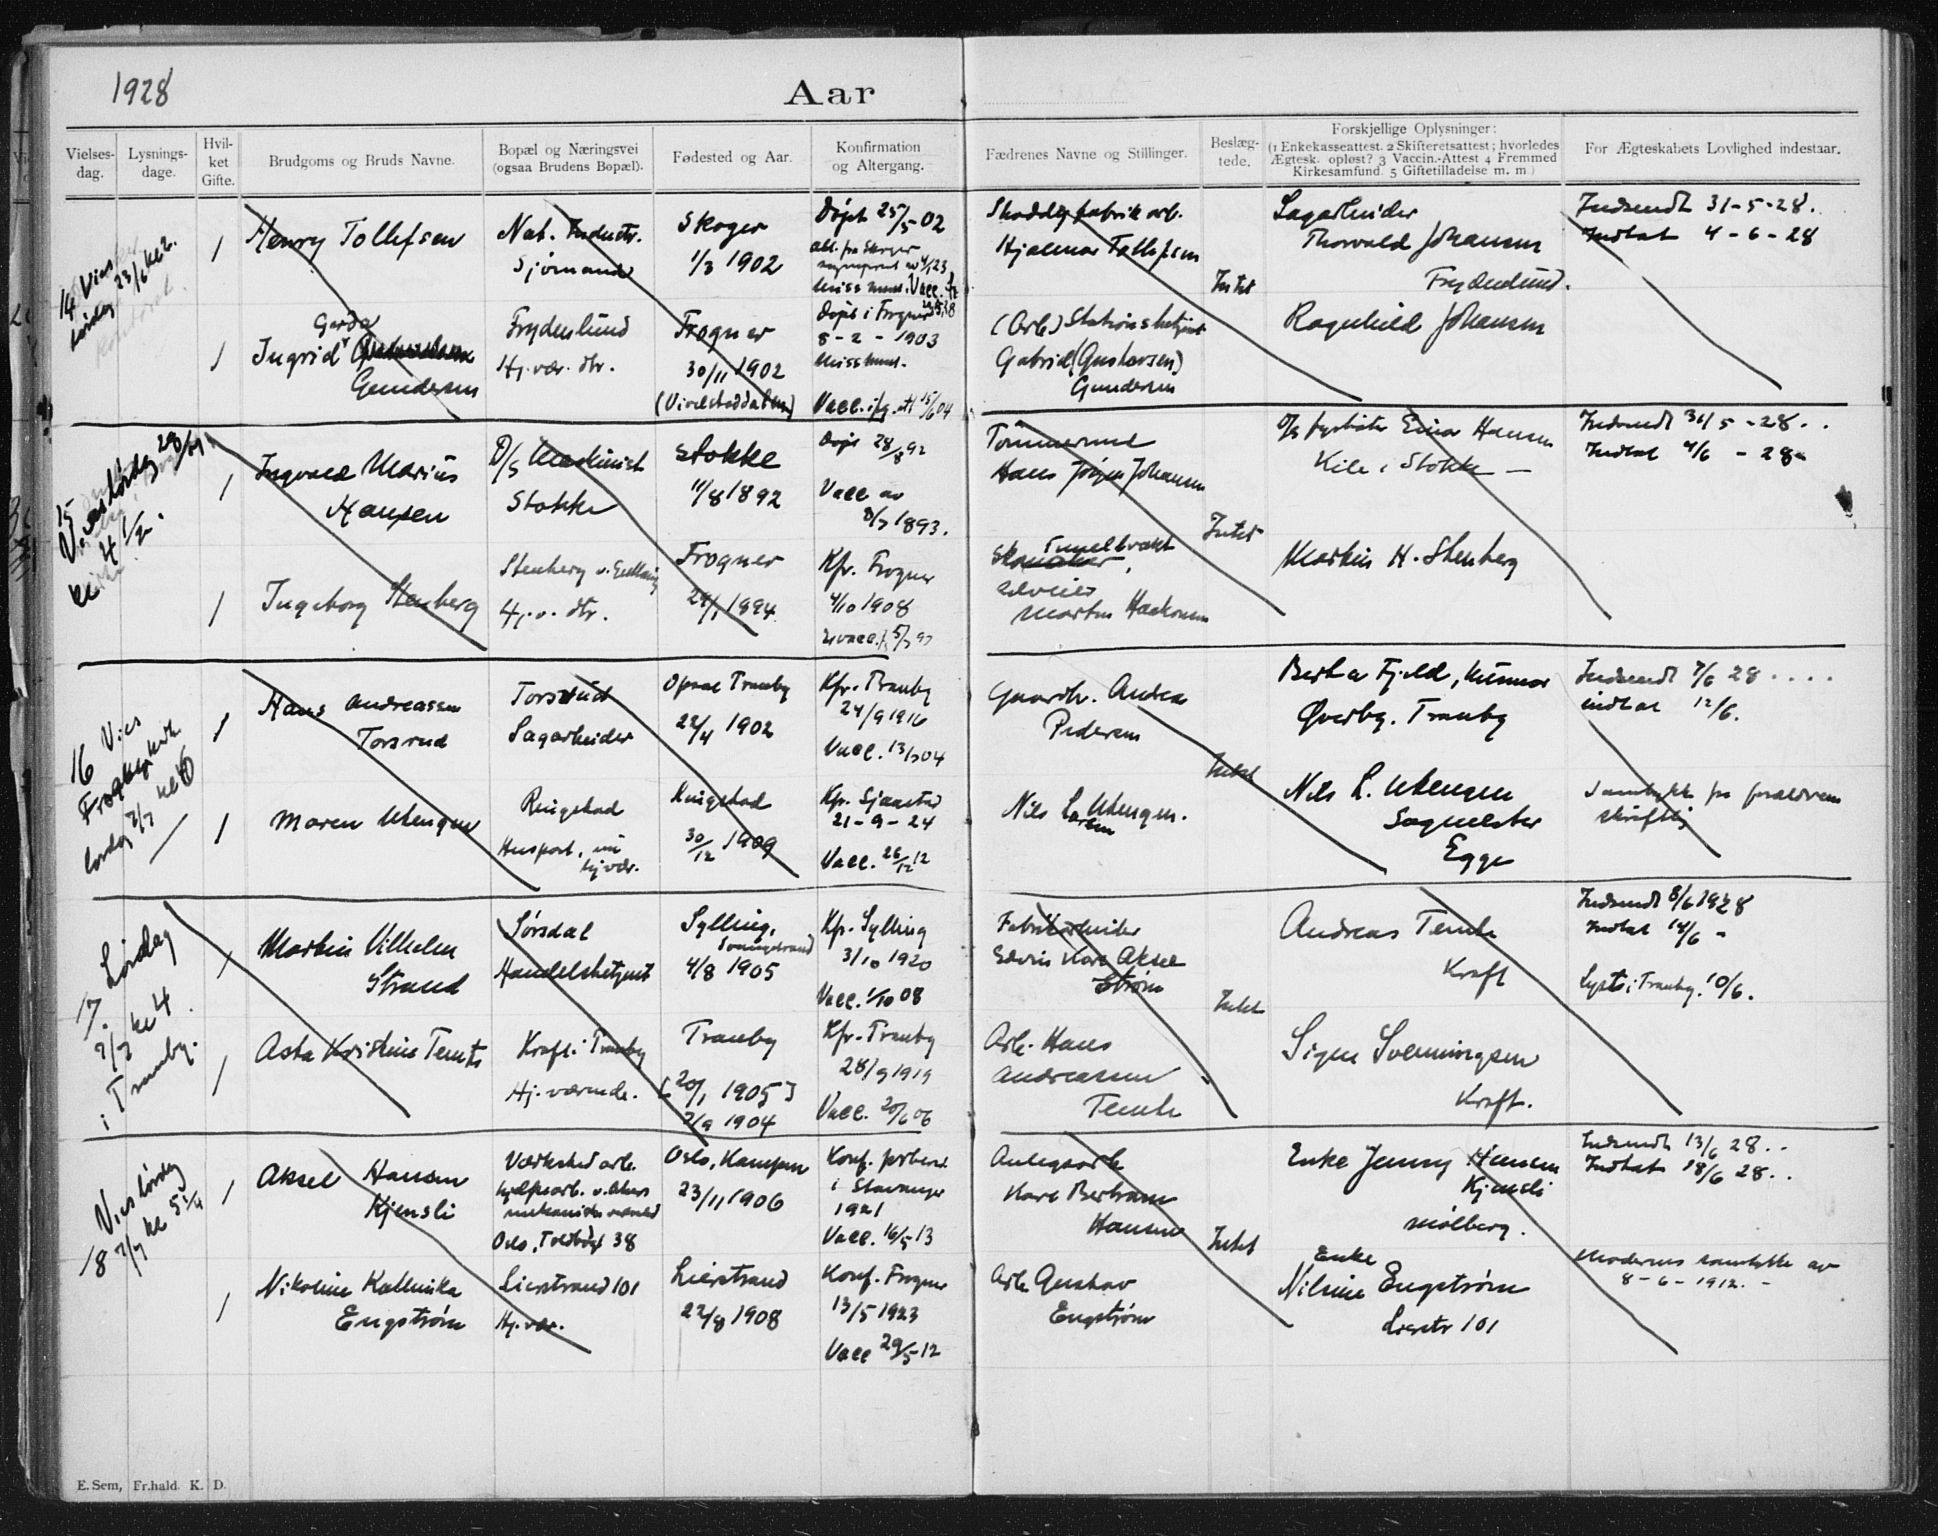 1928
Aar
Vielses-
dag.
Lysnings-
dage.
Hvil-
ket
Gifte.
Brudgoms og Bruds Navne.
Bopæl og Næringsvei
(ogsaa Brudens Bopæl).
Fødested og Aar.
Konfirmation
og Altergang.
Fædrenes Navne og Stillinger.
Beslæg-
tede.
Forskjellige Oplysninger:
(1 Enkekasseattest. 2 Skifteretsattest; hvorledes
Ægtesk. opløst? 3 Vaccin.-Attest 4 Fremmed
Kirkesamfund. 5 Giftetilladelse m. m)
For Ægteskabets Lovlighed indestaar.
14 Vies
lørdag 23/6 kl 2.
1
Henry Tollefsen
Nat. Industr.
Sjømand
Skoger
1/3 1902
Døpt 25/5-02
Hjalmar Tollefsen
Intet
Sagarbeider
Thorvald Johansen
Frydenlund.
Indsendt 31-5-28.
Indtat 4-6-28
1
Gerda
Ingrid
Gundersen
Frydenlund
Hj. vær. dtr.
Frogner
30/11 1902
Døpt i Frogner
8-2-1903
Vacc.
(Arb.) Stationsbetjent
Gabriel (Gustavsen)
Gundersen
Ragnhild Johansen
15
kl 4 1/2.
1
Ingvald Marius
Hansen
D/S Maskinist
Stokke
Stokke
11/8 1892
Døpt 28/8 92
Vacc av
1893.
Tømmermd
Hans Jørgen Johansen
Intet
Einar Hansen
i Stokke —
Indsendt 31/5-28..
Indtat 4/6-28-
1
Ingeborg Stenberg
Stenberg v. Gullaug
Hj. v. dtr.
Frogner
1894
Kfr. Frogner
4/10 1908
Tunelvakt
Martin Haakonsen
Martin H. Stenberg
16 Vies
lørdag 7/7 kl 4
1
Hans Andreassen
Torsrud
Torsrud
Sagarbeider
Opsal Tranby
22/4 1902
Kfr. Tranby
24/9 1916
Vacc. 13/7 04
Gaardbr. Anders
Pedersen
Intet
Berta Fjeld,
Øverby. Tranby
Indsendt 7/6 28....
indtat 12/6.
1
Maren Utengen
Ringstad
Huspost, nu
hj vær.
Ringstad
30/12 1909
Kfr. Sjaastad
21-9-24
Vacc. 26/12 12
Nils Larsen Utengen.
Nils L. Utengen
Sagmester
Egge
Samtykke fra forældrene
skriftlig
17. Lørdag
7/7 kl 4
i Tranby.
1
Martin Vilhelm
Strand
Sørsdal
Handelsbetjent
Sylling,
4/8 1905
Kfr. Sylling
3/10 1920
Vacc. 1/10 08
Fabrikarbeider
Edvin Karl Aksel
Strøm
Intet
Andreas Temte
Kraft
Indsendt 8/6 1928
Indtat 14/6 -
Lyst i Tranby. 10/6.
1
Asta Kristine Temte
Kraft i Tranby
Hj. værende.
Tranby
[20/1 1905]
2/9 1904
Kfr. Tranby
28/9 1919
Vacc. 20/6 06
Arb. Hans
Andreassen
Temte
Signe Svenningsen
Kraft.
18 Vies lørdag
7/7 kl 5 1/4
1
Aksel Hansen
Kjensli
Værksted arb.
Oslo, 38
Oslo, Kampen
23/11 1906
Konf.
i Stavanger
1921
Vacc. 16/5 13
Anlegsarb
Karl Bertram
Hansen
Intet
Enke Jenny Hansen
Kjensli
Mølberg.
Indsendt 13/6 28..
Indtat 18/6 28..
1
Nikoline Kathinka
Engstrøm
Lierstrand 101
Hj. vær.
Lierstrand
22/8 1908
Konf. Frogner
13/5 1923
Vacc 29/5-12
Arb. Gustav
Engstrøm
Enke
Nilsine Engstrøm
Lierstr 101
Moderens samtykke av
8-6-1912. -
E. Sem, Fr.hald. K. D.